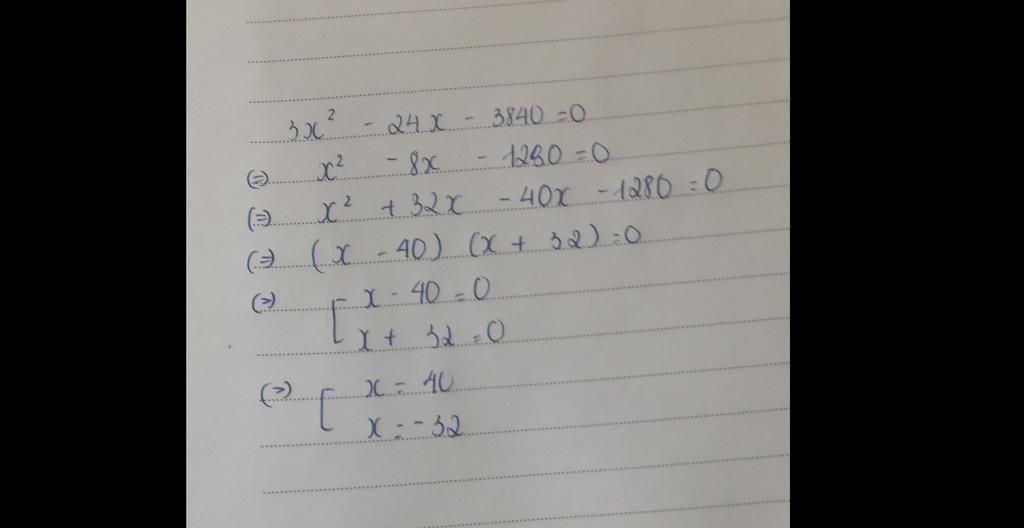 3x² - 24x - 3840 = 0
(=) x² - 8x - 1280 = 0
(=) x² + 32x - 40x - 1280 = 0
(=) (x - 40) (x + 32) = 0
(=) [ x - 40 = 0
x + 32 = 0
(=) [ x = 40
x = -32